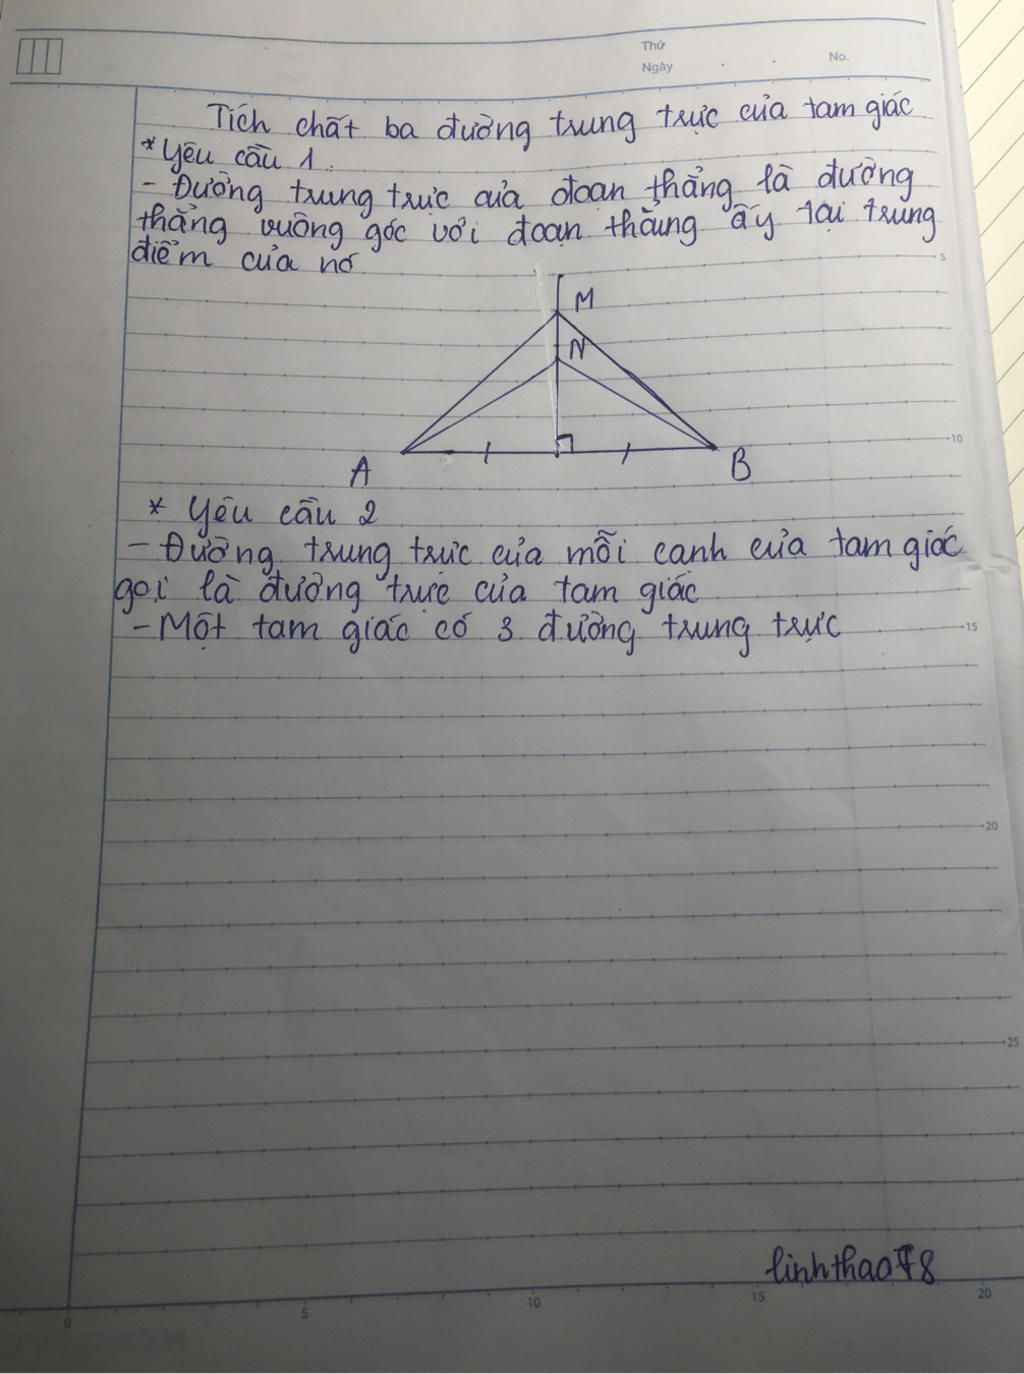 Thứ
Ngày
No.
Tích chất ba đường trung trực của tam giác
* Yêu cầu 1:
- Đường trung trực của đoạn thẳng là đường
thẳng vuông góc với đoạn thẳng ấy tại trung
điểm của nó
5
M
N
10
A
B
* Yêu cầu 2
- Đường trung trực của mỗi cạnh của tam giác
gọi là đường trực của tam giác
- Một tam giác có 3 đường trung trực
15
20
25
linhthao78
0
5
10
15
20